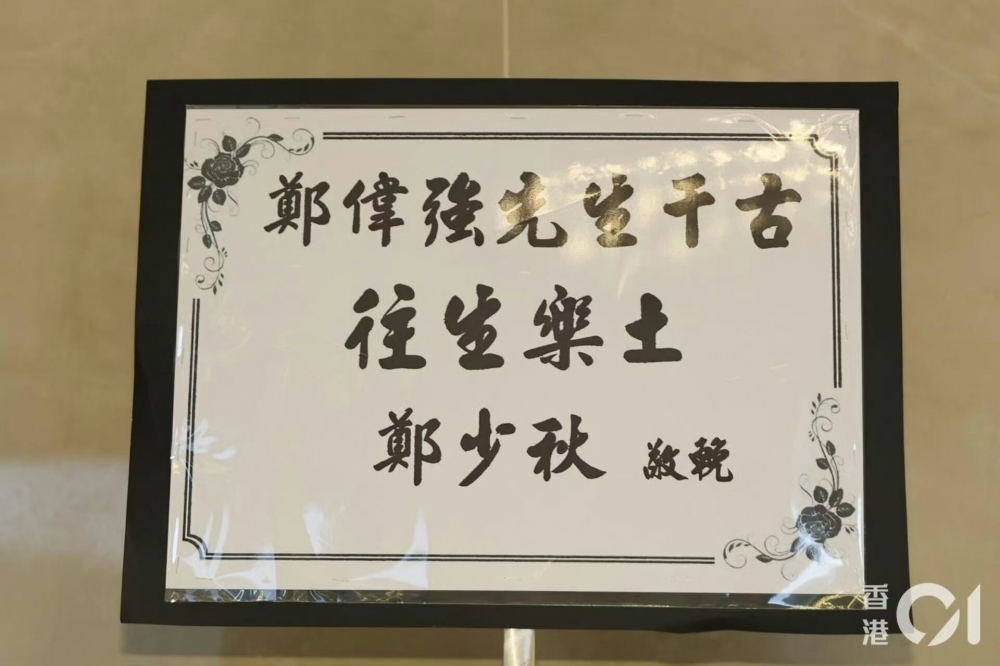 鄭偉強先生千古
往生樂土
鄭少秋 敬輓
香港01